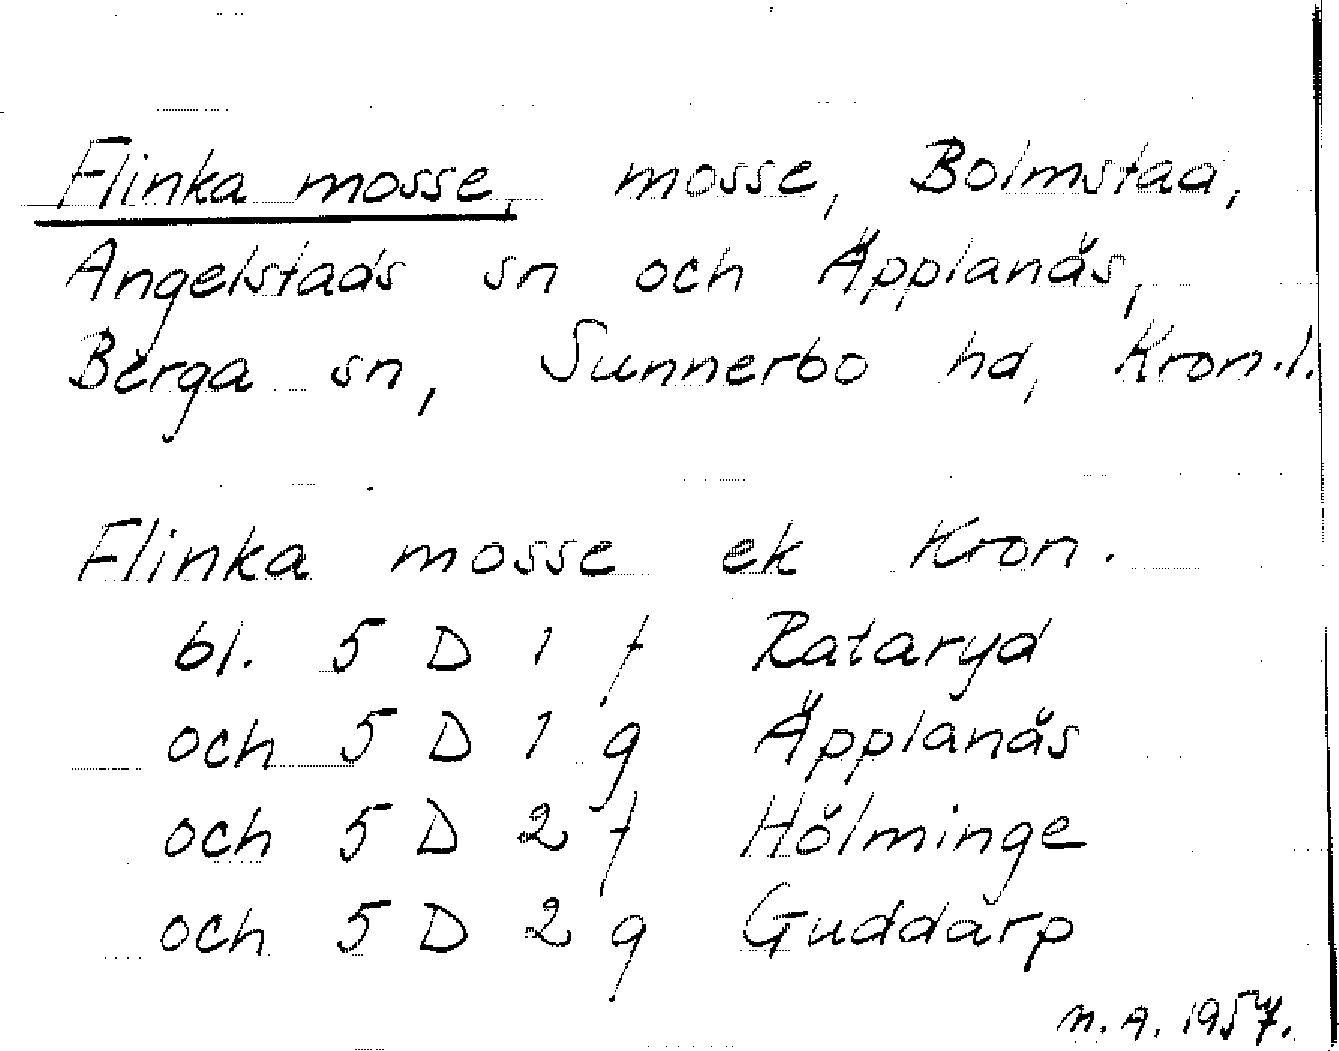 Flinka mosse, mosse, Bolmstad,
Angelstads sn och Äpplanäs,
Berga sn, Sunnerbo hd, Kron.l.
Flinka mosse ek Kron.
bl. 5 D 1 f Rataryd
och 5 D 1 g Äpplanäs
och 5 D 2 f Hölminge
och 5 D 2 g Guddarp
N. A. 1957.